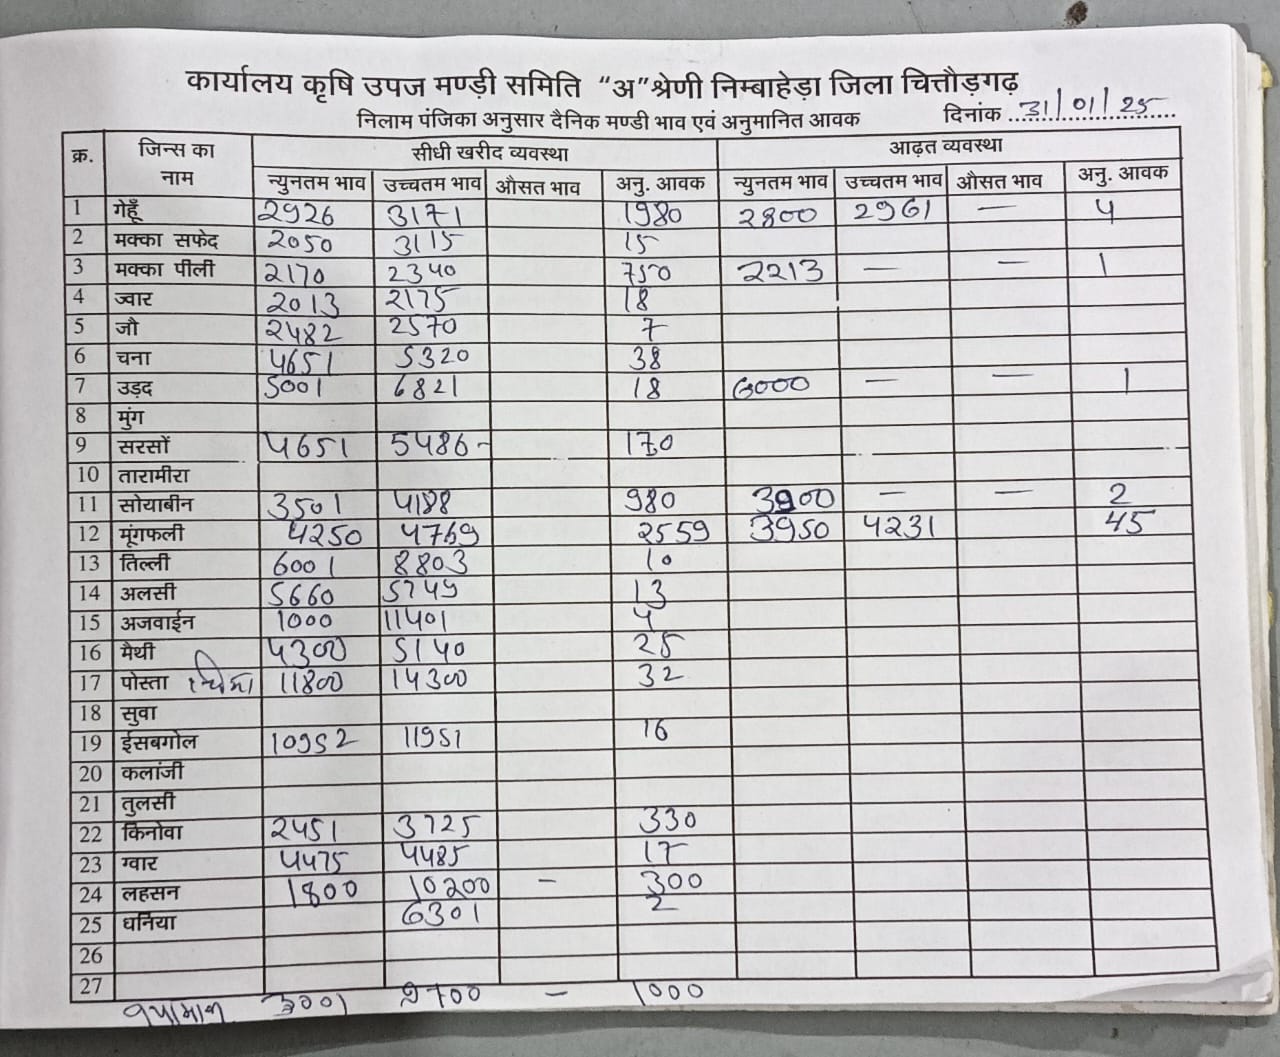 कार्यालय कृषि उपज मण्ड़ी समिति "अ" श्रेणी निम्बाहेड़ा जिला चित्तौड़गढ़
निलाम पंजिका अनुसार दैनिक मण्डी भाव एवं अनुमानित आवक दिनांक 31/01/25
क्र. जिन्स का नाम सीधी खरीद व्यवस्था आढ़त व्यवस्था
न्युनतम भाव उच्चतम भाव औसत भाव अनु. आवक न्युनतम भाव उच्चतम भाव औसत भाव अनु. आवक
1 गेहूँ 2926 3171 1980 2800 2961 — 4
2 मक्का सफेद 2050 3115 15
3 मक्का पीली 2170 2340 750 2213 — — 1
4 ज्वार 2013 2175 18
5 जौ 2482 2570 7
6 चना 4651 5320 38
7 उड़द 5001 6821 18 6000 — — 1
8 मुंग
9 सरसों 4651 5486 - 170
10 तारामीरा
11 सोयाबीन 3501 4188 980 3900 — — 2
12 मूंगफली 4250 4769 2559 3950 4231 45
13 तिल्ली 6001 8803 10
14 अलसी 5660 5749 13
15 अजवाईन 1000 11401 4
16 मैथी 4300 5140 25
17 पोस्ता 11800 14300 32
18 सुवा
19 ईसबगोल 10952 11951 16
20 कलांजी
21 तुलसी
22 किनोवा 2451 3725 330
23 ग्वार 4475 4485 17
24 लहसन 1800 10200 — 300
25 धनिया 6301 2
26
27
3001 2700 — 1000